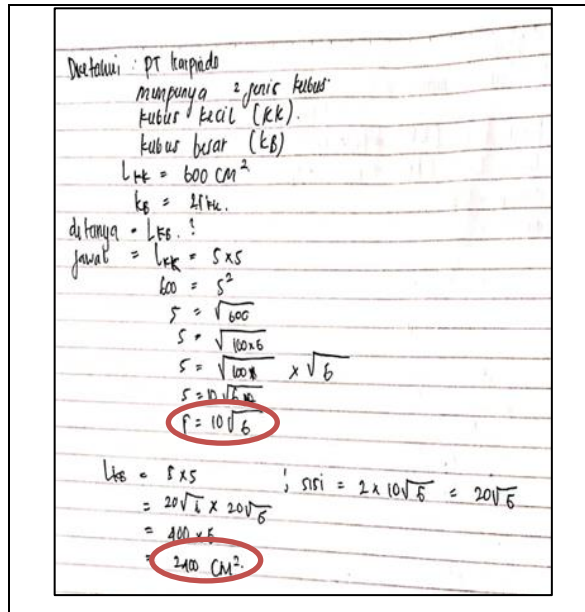 Diketahui : PT karpindo
mempunya 2 jenis kubus
kubus kecil (KK).
kubus besar (KB)
L KK = 600 CM²
KB =
ditanya = L KB . ?
Jawab = L KK = S x S
600 = S²
S = √600
S = √100x6
S = √100 x √6
S = 10√6
S = 10√6
L KB = S x S ; sisi = 2 x 10√6 = 20√6
= 20√6 x 20√6
= 400 x 6
= 2400 CM².